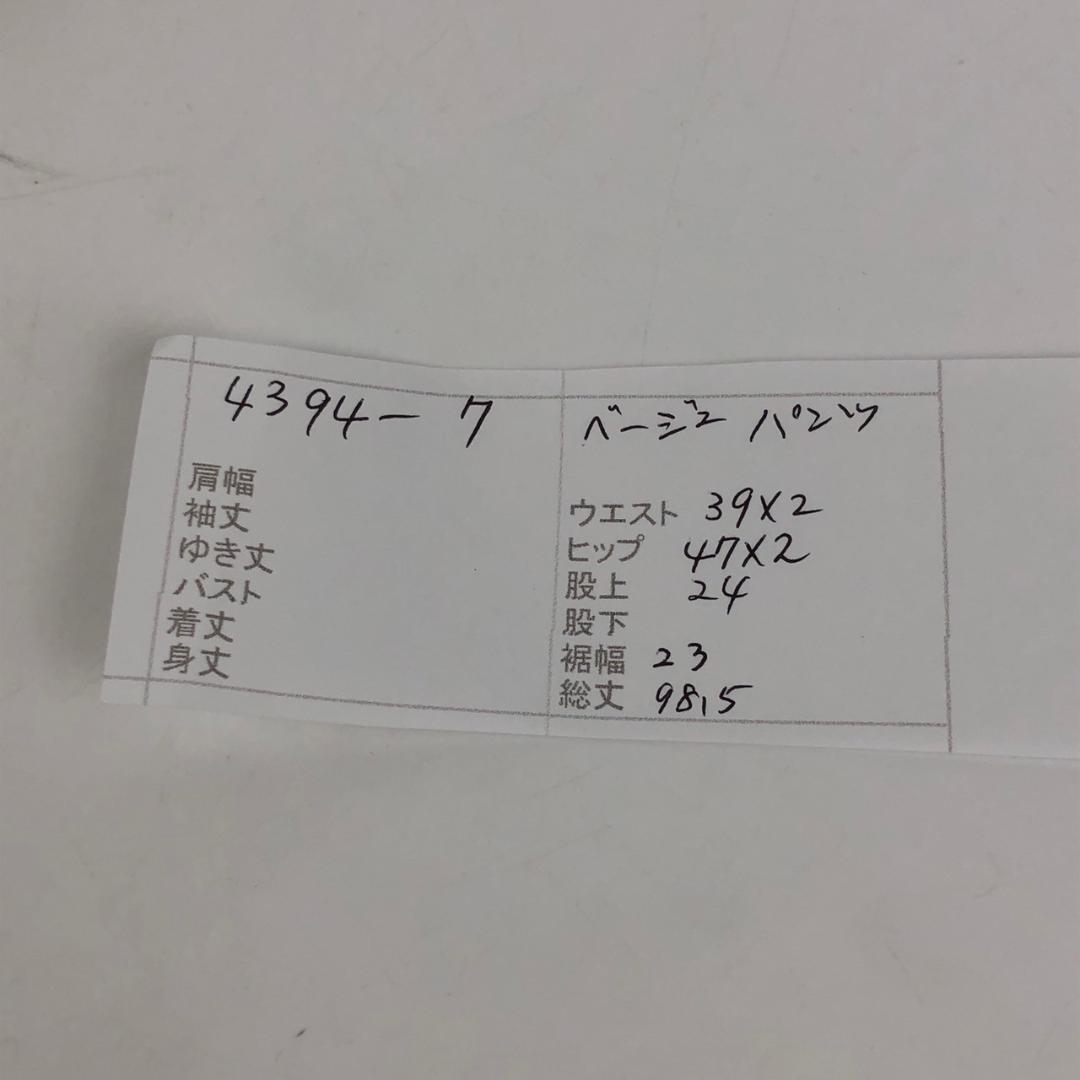 4394- 7
肩幅
袖丈
ゆき丈
バスト
着丈
身丈
ベージュ パンツ
ウエスト 39×2
ヒップ 47×2
股上 24
股下
裾幅 23
総丈 98,5